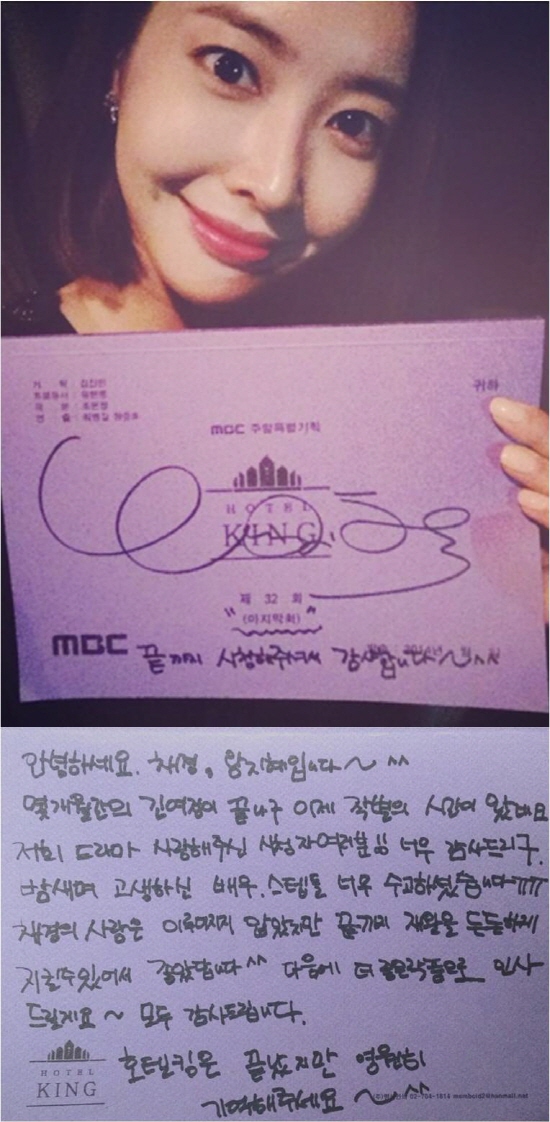 귀하
MBC 주말특별기획
HOTEL
KING
제 32 회
"(마지막회)"
MBC 끝까지 시청해주셔서 감사합니다~^^
안녕하세요. 채경, 왕지혜입니다~ ^^
몇개월간의 긴여정이 끝나구 이제 작별의 시간이 왔네요
저희 드라마 사랑해주신 시청자여러분!! 너무 감사드리구.
밤새며 고생하신 배우, 스텝들 너무 수고하셨습니다ㅠㅠ
채경의 사랑은 이루어지지 않았지만 끝까지 재완을 든든하게
지킬수있어서 좋았답니다^^ 다음에 더 좋은작품으로 인사
드릴게요~ 모두 감사드립니다.
HOTEL
KING
호텔킹은 끝났지만 영원히
기억해주세요~^^
02-704-1814